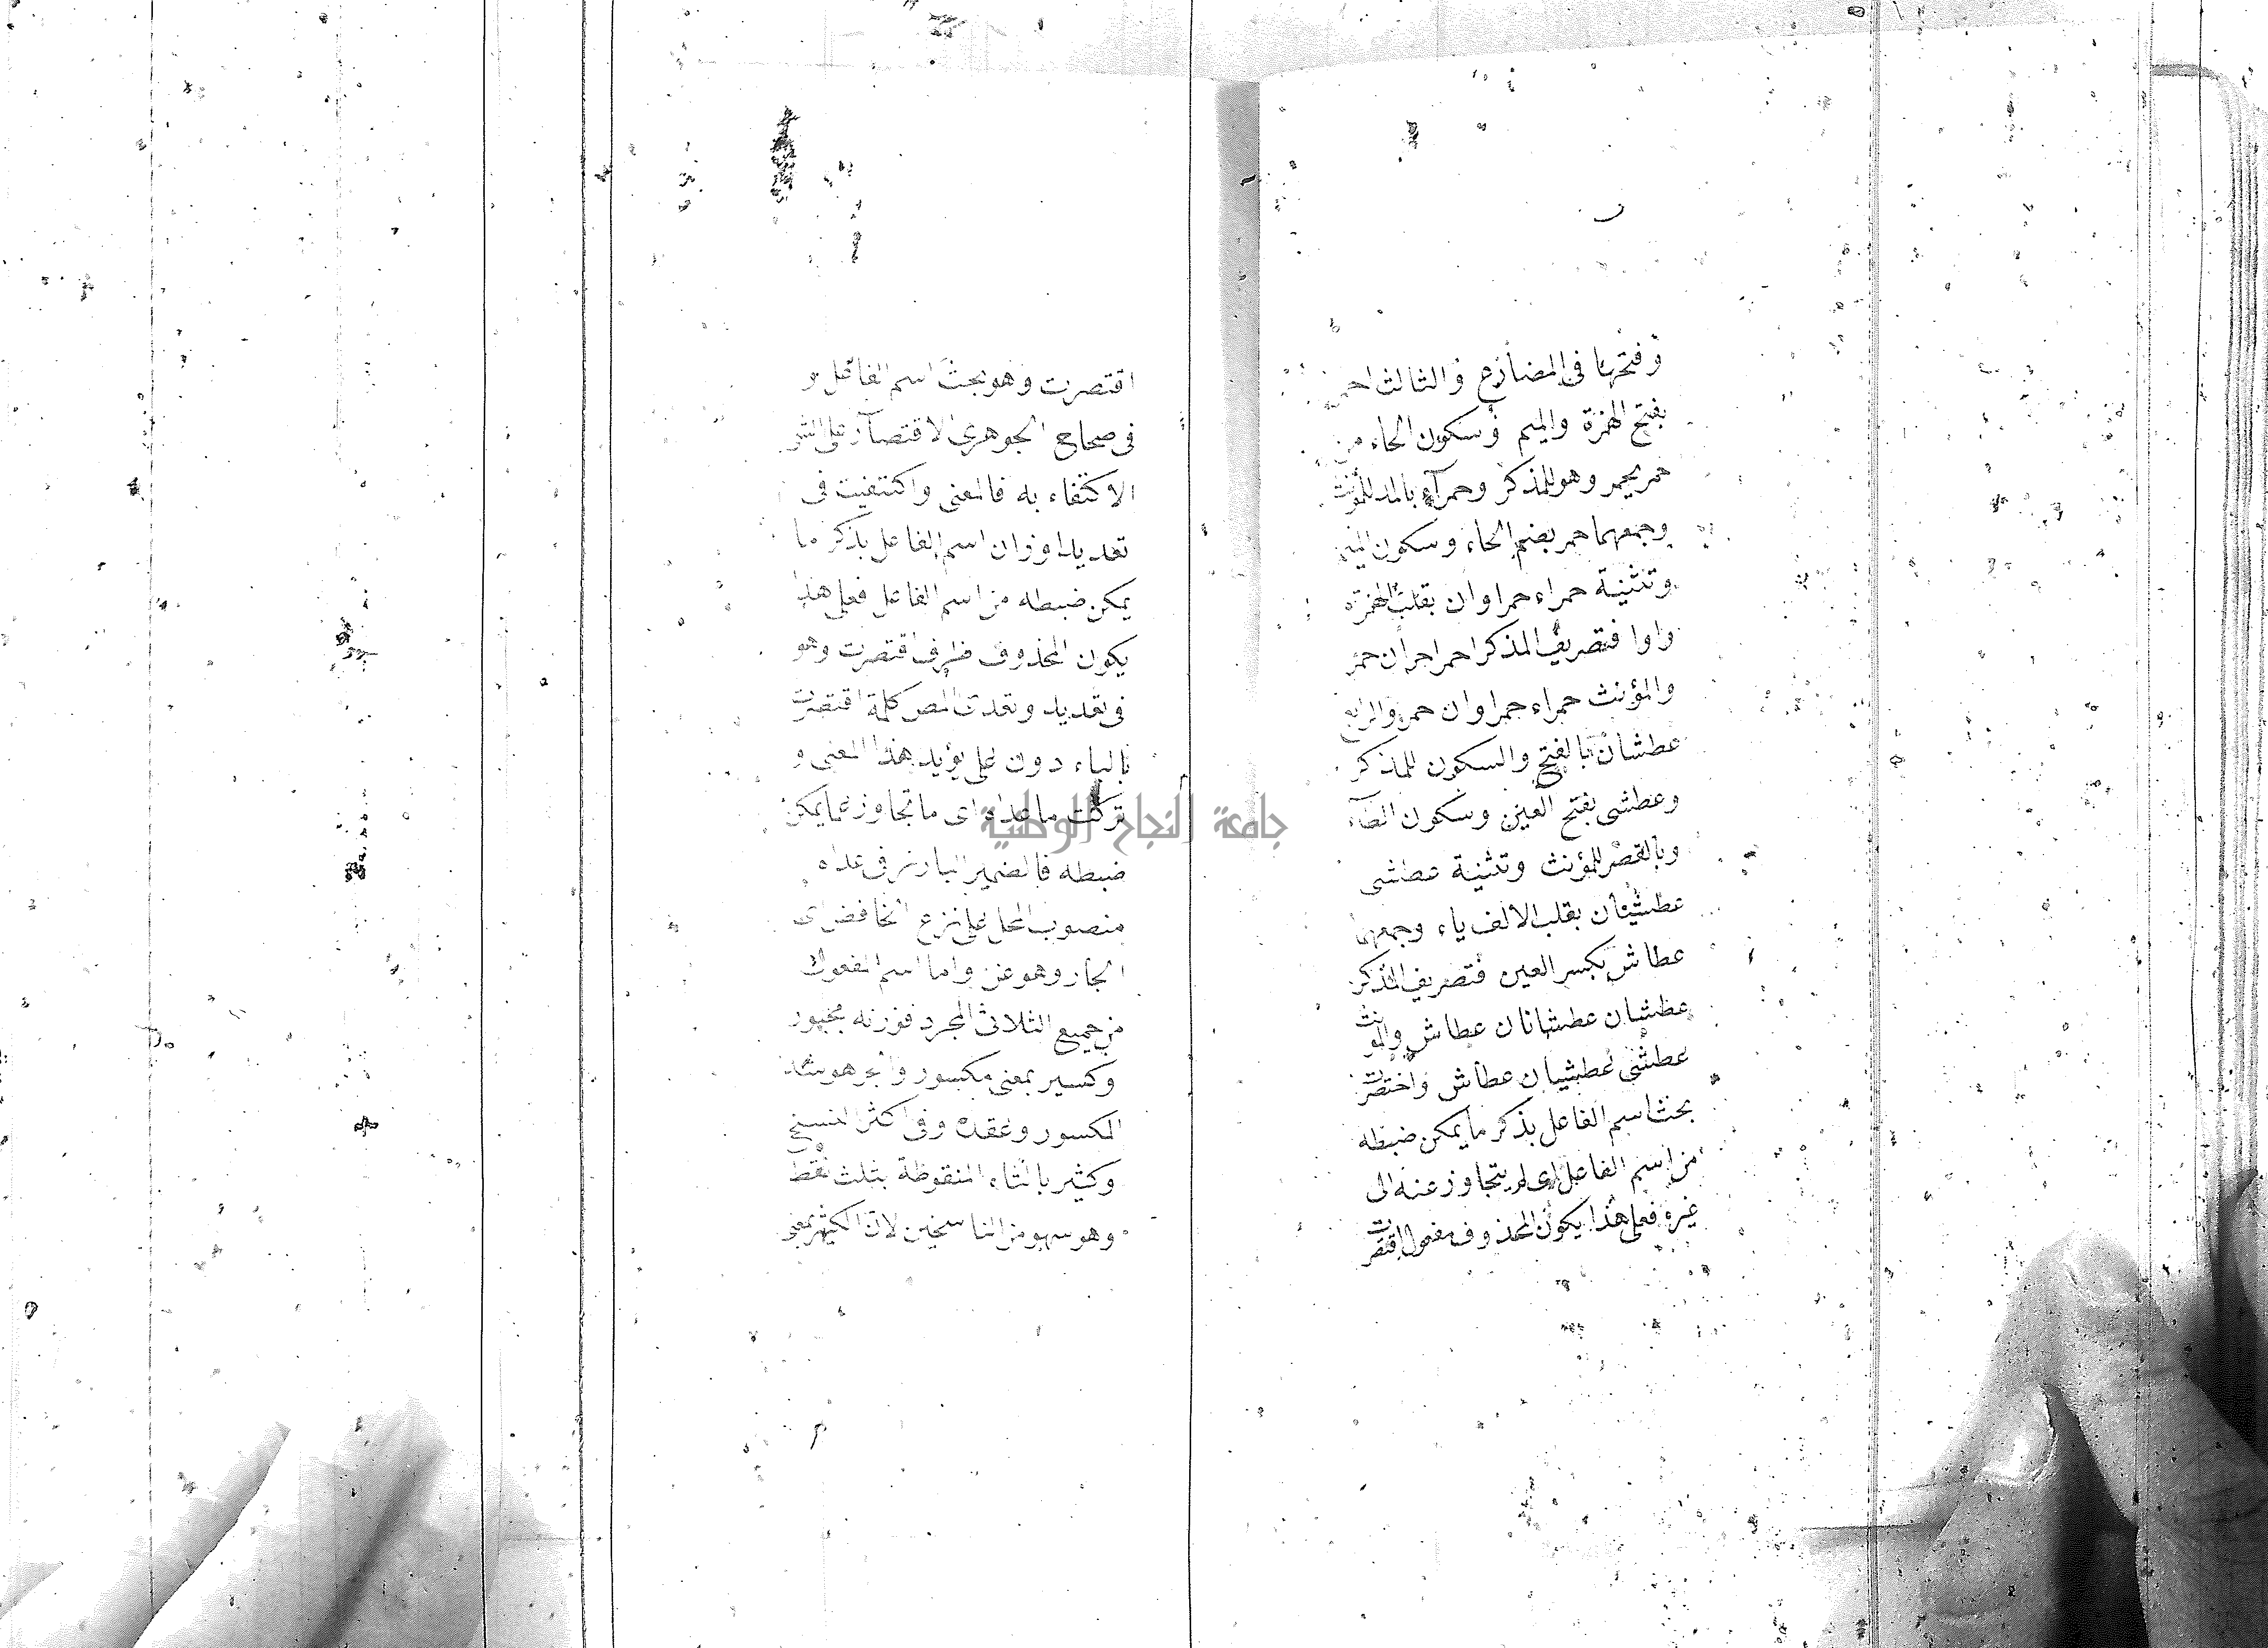 وفتحها في المضارع والثالث احمر
بفتح الهمزة والميم وسكون الحاء من
حمر يحمر وهو للمذكر وحمرآء بالمد للمؤنث
وجمعهما حمر بضم الحاء وسكون الميم
وتثنية حمراء حمراوان بقلب الهمزة
واوا فتصريف المذكر احمر احمران حمر
والمؤنث حمراء حمراوان حمر والرابع
عطشان بالفتح والسكون للمذكر
وعطشى بفتح العين وسكون الطآء
وبالقصر للمؤنث وتثنية عطشى
عطشيان بقلب الالف ياء وجمعهما
عطاش بكسر العين فتصريف المذكر
عطشان عطشانان عطاش والمؤنث
عطشى عطشيان عطاش واختصرت
بحث اسم الفاعل بذكر ما يمكن ضبطه
من اسم الفاعل اى لم يتجاوز عنه الى
غيره فعلى هذا يكون المحذوف مفعول اقتصرت
اقتصرت وهو بحث اسم الفاعل و
في صحاح الجوهرى الاقتصآر على الشئ
الاكتفاء به فالمعنى واكتفيت في
تعديد اوزان اسم الفاعل بذكر ما
يمكن ضبطه من اسم الفاعل فعلى هذا
يكون المحذوف ظرف اقتصرت وهو
في تعديد وتعدية المص كلمة اقتصرت
بالباء دون على يؤيد هذا المعنى و
تركت ما عداه اى ما تجاوز عما يمكن
ضبطه فالضمير البارز في عداه
منصوب المحل على نزع الخافض اى
الجار وهو عن واما اسم المفعول
من جميع الثلاثى المجرد فوزنه مجبور
وكسير بمعنى مكسور والجبر هو شد
المكسور وعقده وفى اكثر النسخ
وكثير بالثاء المنقوطة بثلث نقط
وهو سهو من الناسخين لان الكثير بمعنى
جامعة النجاح الوطنية